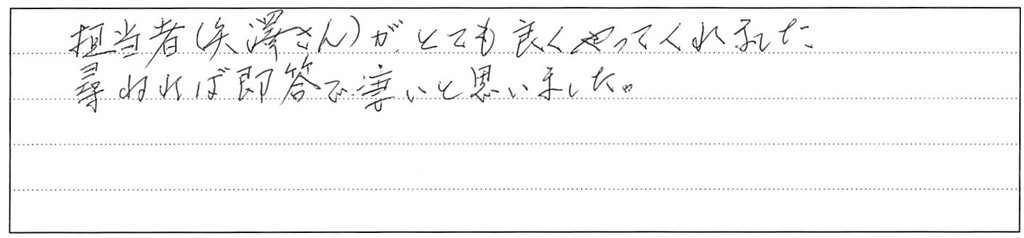 担当者(矢澤さん)が、とても良くやってくれました
尋ねれば即答で凄いと思いました。